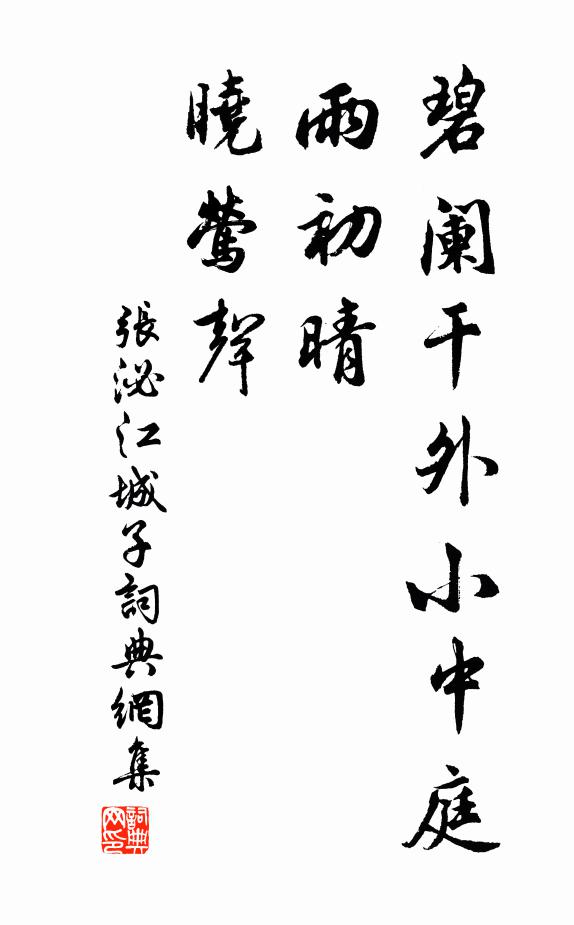 碧阑干外小中庭
雨初晴
曉鶯聲
張泌江城子詞典網集
詞典网印